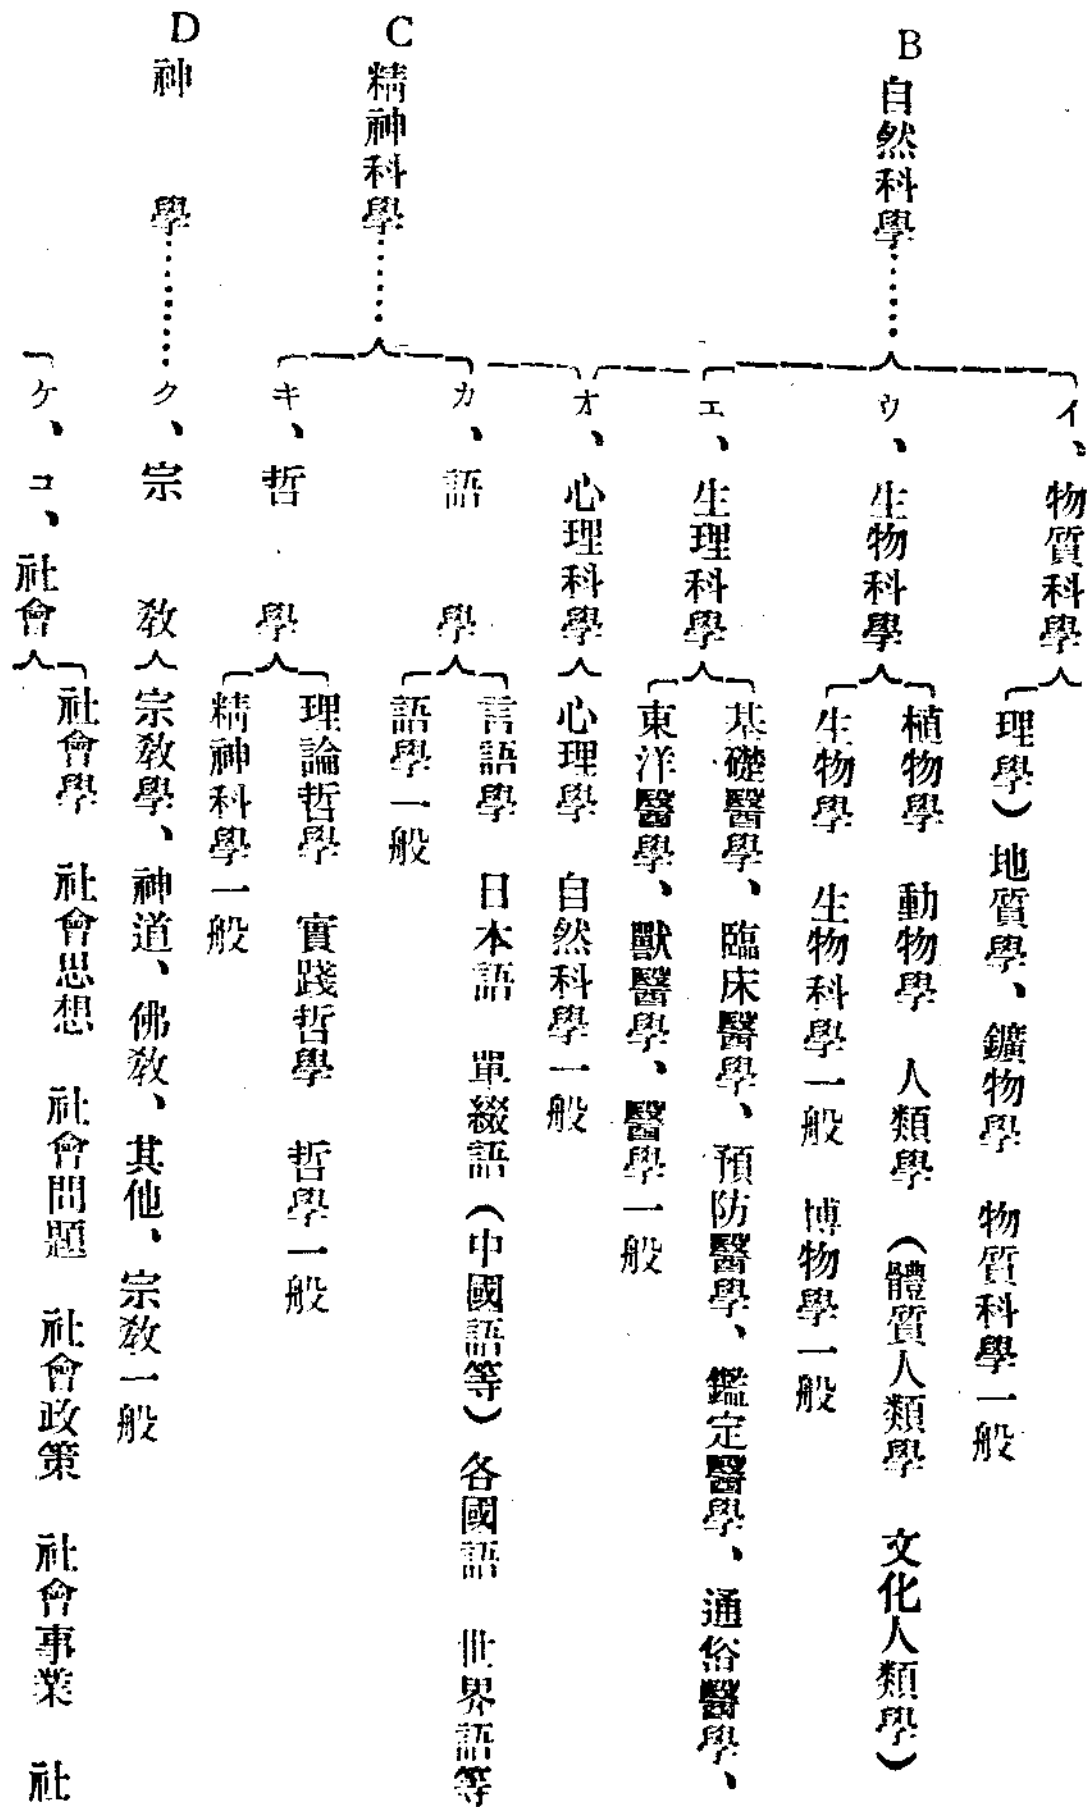 B 自然科學……
イ、物質科學
理學）地質學、鑛物學　物質科學一般
ウ、生物科學
植物學　動物學　人類學　（體質人類學　文化人類學）
生物學　生物科學一般　博物學一般
エ、生理科學
基礎醫學、臨床醫學、預防醫學、鑑定醫學、通俗醫學、
東洋醫學、獸醫學、醫學一般
オ、心理科學
心理學　自然科學一般
C 精神科學……
カ、語學
言語學　日本語　單綴語（中國語等）各國語　世界語等
語學一般
キ、哲學
理論哲學　實踐哲學　哲學一般
精神科學一般
D 神學……
ク、宗教
宗教學、神道、佛教、其他、宗教一般
ケ、コ、社會
社會學　社會思想　社會問題　社會政策　社會事業　社